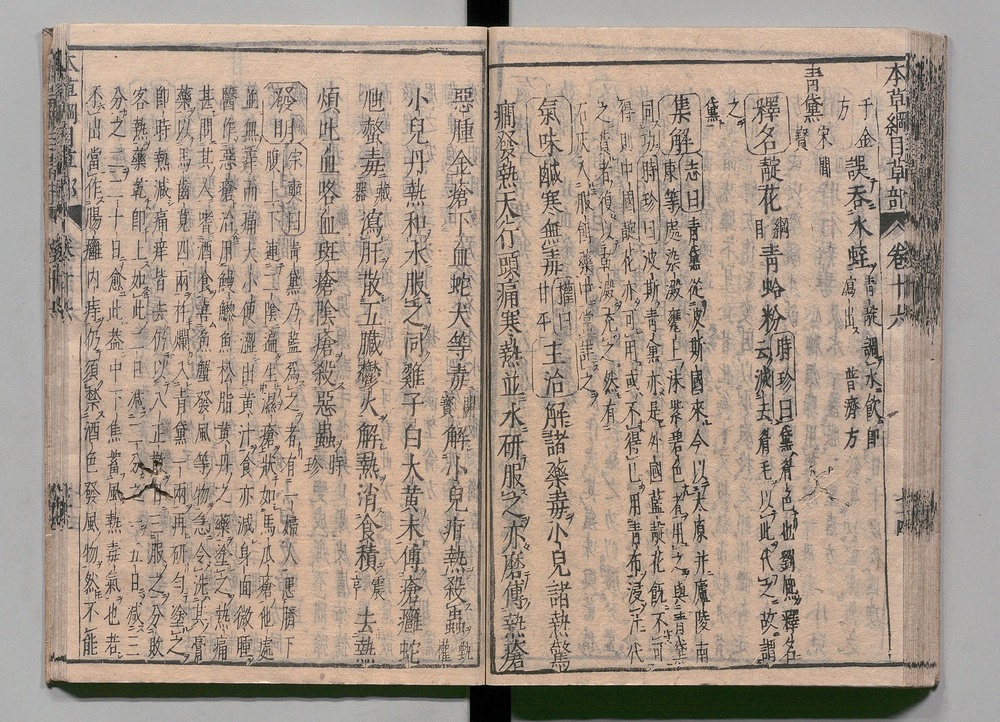 本草綱目草部 卷十六 十四
千金方 誤吞水蛭 青靛調水飲即瀉出 普濟方
青黛 宋開寶
釋名 靛花 綱目 青蛤粉 時珍曰黛眉色也劉熙釋名云滅去眉毛以此代之故謂之黛
集解 志曰青黛從波斯國來今以太原并廬陵南康等處染澱甕上沫紫碧色者用之與青黛同功時珍曰波斯青黛亦是外國藍靛花既不可得則中國靛花亦可用或不得已用青布浸汁代之貨者復以
入服餌藥中當詳之
氣味 鹹寒無毒 權曰甘平 主治 解諸藥毒小兒諸熱驚
癇發熱天行頭痛寒熱並水研服之亦磨傅熱瘡
惡腫金瘡下血蛇犬等毒 開寶 解小兒疳熱殺蟲 甄權
小兒丹熱和水服之同雞子白大黃末傅瘡癰蛇
虺螫毒 藏器 瀉肝散五臟鬱火解熱消食積 震亨 去熱
煩吐血咯血斑瘡陰瘡殺惡蟲 時珍
發明 宗奭曰青黛乃藍為之者有一婦人患臍下腹上下連二陰遍生濕瘡狀如馬瓜瘡他處
並無痒而痛大小便澀出黃汁食亦減身面微腫
醫作惡瘡治用鰻鱺魚松脂黃丹之藥塗之熱痛
甚問其人嗜酒食喜魚蟹發風等物急令洗其膏
藥以馬齒莧四兩杵爛入青黛一兩再研勻塗之
即時熱減痛痒皆去仍以八正散日三服之分敗
客熱藥乾即上如此二日減三分之一五日減三
分之二二十日愈此蓋中下焦蓄風熱毒氣也若
不出當作腸癰內痔仍須禁酒色發風物然不能